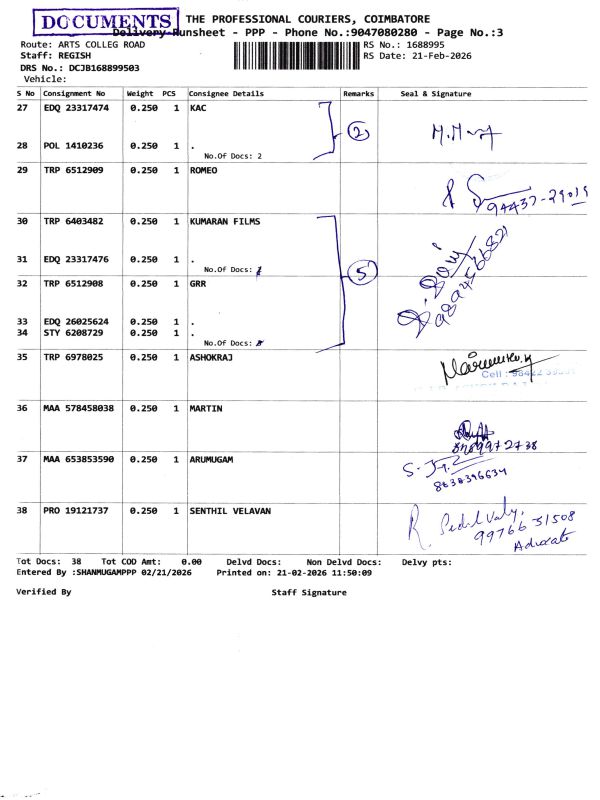 DOCUMENTS
THE PROFESSIONAL COURIERS, COIMBATORE
Delivery Runsheet - PPP - Phone No.:9047080280 - Page No.:3
Route: ARTS COLLEG ROAD
RS No.: 1688995
Staff: REGISH
RS Date: 21-Feb-2026
DRS No.: DCJB168899503
Vehicle:
S No Consignment No Weight PCS Consignee Details Remarks Seal & Signature
27 EDQ 23317474 0.250 1 KAC
2
28 POL 1410236 0.250 1 .
No.Of Docs: 2
29 TRP 6512909 0.250 1 ROMEO
30 TRP 6403482 0.250 1 KUMARAN FILMS
31 EDQ 23317476 0.250 1 .
No.Of Docs:
5
32 TRP 6512908 0.250 1 GRR
33 EDQ 26025624 0.250 1 .
34 STY 6208729 0.250 1 .
No.Of Docs:
35 TRP 6978025 0.250 1 ASHOKRAJ
Cell :
36 MAA 578458038 0.250 1 MARTIN
37 MAA 653853590 0.250 1 ARUMUGAM
8838396634
38 PRO 19121737 0.250 1 SENTHIL VELAVAN
99766 31508
Advocate
Tot Docs: 38 Tot COD Amt: 0.00 Delvd Docs: Non Delvd Docs: Delvy pts:
Entered By :SHANMUGAMPPP 02/21/2026 Printed on: 21-02-2026 11:50:09
Verified By Staff Signature